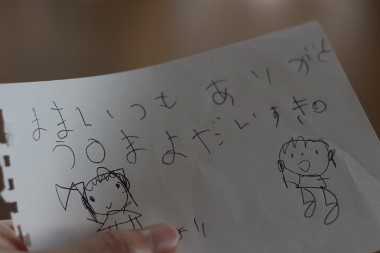 ままいつもありがと
う○まよだいすき○
より